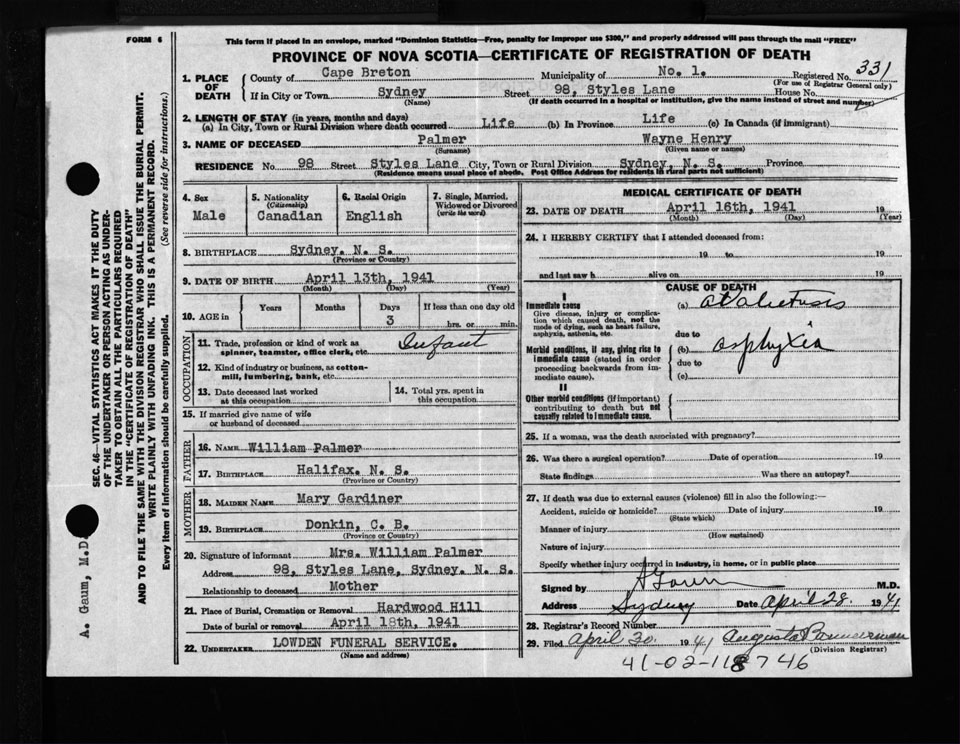 FORM 6
This form if placed in an envelope, marked "Dominion Statistics—Free, penalty for improper use $300," and properly addressed will pass through the mail "FREE"
PROVINCE OF NOVA SCOTIA—CERTIFICATE OF REGISTRATION OF DEATH
1. PLACE OF DEATH
County of Cape Breton Municipality of No. 1. Registered No. 331
(For use of Registrar General only)
If in City or Town Sydney Street 98, Styles Lane House No.
(Name) (If death occurred in a hospital or institution, give the name instead of street and number)
2. LENGTH OF STAY (in years, months and days)
(a) In City, Town or Rural Division where death occurred Life (b) In Province Life (c) In Canada (if immigrant)
3. NAME OF DECEASED Palmer Wayne Henry
(Surname) (Given name or names)
RESIDENCE No. 98 Street Styles Lane City, Town or Rural Division Sydney, N. S. Province
(Residence means usual place of abode. Post Office Address for residents in rural parts not sufficient)
4. Sex
Male
5. Nationality
(Citizenship)
Canadian
6. Racial Origin
English
7. Single, Married, Widowed or Divorced
(write the word)
8. BIRTHPLACE Sydney. N. S.
(Province or Country)
9. DATE OF BIRTH April 13th, 1941
(Month) (Day) (Year)
10. AGE in Years Months Days If less than one day old
3 hrs. or min.
OCCUPATION
11. Trade, profession or kind of work as spinner, teamster, office clerk, etc. Infant
12. Kind of industry or business, as cotton-mill, lumbering, bank, etc.
13. Date deceased last worked at this occupation
14. Total yrs. spent in this occupation
15. If married give name of wife or husband of deceased
FATHER
16. NAME William Palmer
17. BIRTHPLACE Halifax. N. S.
(Province or Country)
MOTHER
18. MAIDEN NAME Mary Gardiner
19. BIRTHPLACE Donkin, C. B.
(Province or Country)
20. Signature of informant Mrs. William Palmer
Address 98, Styles Lane, Sydney. N. S.
Relationship to deceased Mother
21. Place of Burial, Cremation or Removal Hardwood Hill
Date of burial or removal April 18th, 1941
22. UNDERTAKER LOWDEN FUNERAL SERVICE.
(Name and address)
MEDICAL CERTIFICATE OF DEATH
23. DATE OF DEATH April 16th, 1941 19
(Month) (Day) (Year)
24. I HEREBY CERTIFY that I attended deceased from:
19 to 19
and last saw h alive on 19
CAUSE OF DEATH
I
Immediate cause
Give disease, injury or complication which caused death, not the mode of dying, such as heart failure, asphyxia, asthenia, etc.
(a) atalectasis
due to
Morbid conditions, if any, giving rise to immediate cause (stated in order proceeding backwards from immediate cause).
(b) asphyxia
due to
(c)
II
Other morbid conditions (if important) contributing to death but not causally related to immediate cause.
25. If a woman, was the death associated with pregnancy?
26. Was there a surgical operation? Date of operation 19
State findings Was there an autopsy?
27. If death was due to external causes (violence) fill in also the following:—
Accident, suicide or homicide? Date of injury 19
(State which)
Manner of injury
(How sustained)
Nature of injury
Specify whether injury occurred in industry, in home, or in public place
Signed by A Gaum M.D.
Address Sydney Date April 28. 1941
28. Registrar's Record Number
29. Filed April 30. 1941 Augusta Bannerman
(Division Registrar)
41-02-118746
SEC. 46—VITAL STATISTICS ACT MAKES IT THE DUTY
OF THE UNDERTAKER OR PERSON ACTING AS UNDER-
TAKER TO OBTAIN ALL THE PARTICULARS REQUIRED
IN THE "CERTIFICATE OF REGISTRATION OF DEATH"
AND TO FILE THE SAME WITH THE DIVISION REGISTRAR WHO SHALL ISSUE THE BURIAL PERMIT.
WRITE PLAINLY WITH UNFADING INK. THIS IS A PERMANENT RECORD.
Every item of information should be carefully supplied. (See reverse side for instructions.)
A. Gaum, M.D.